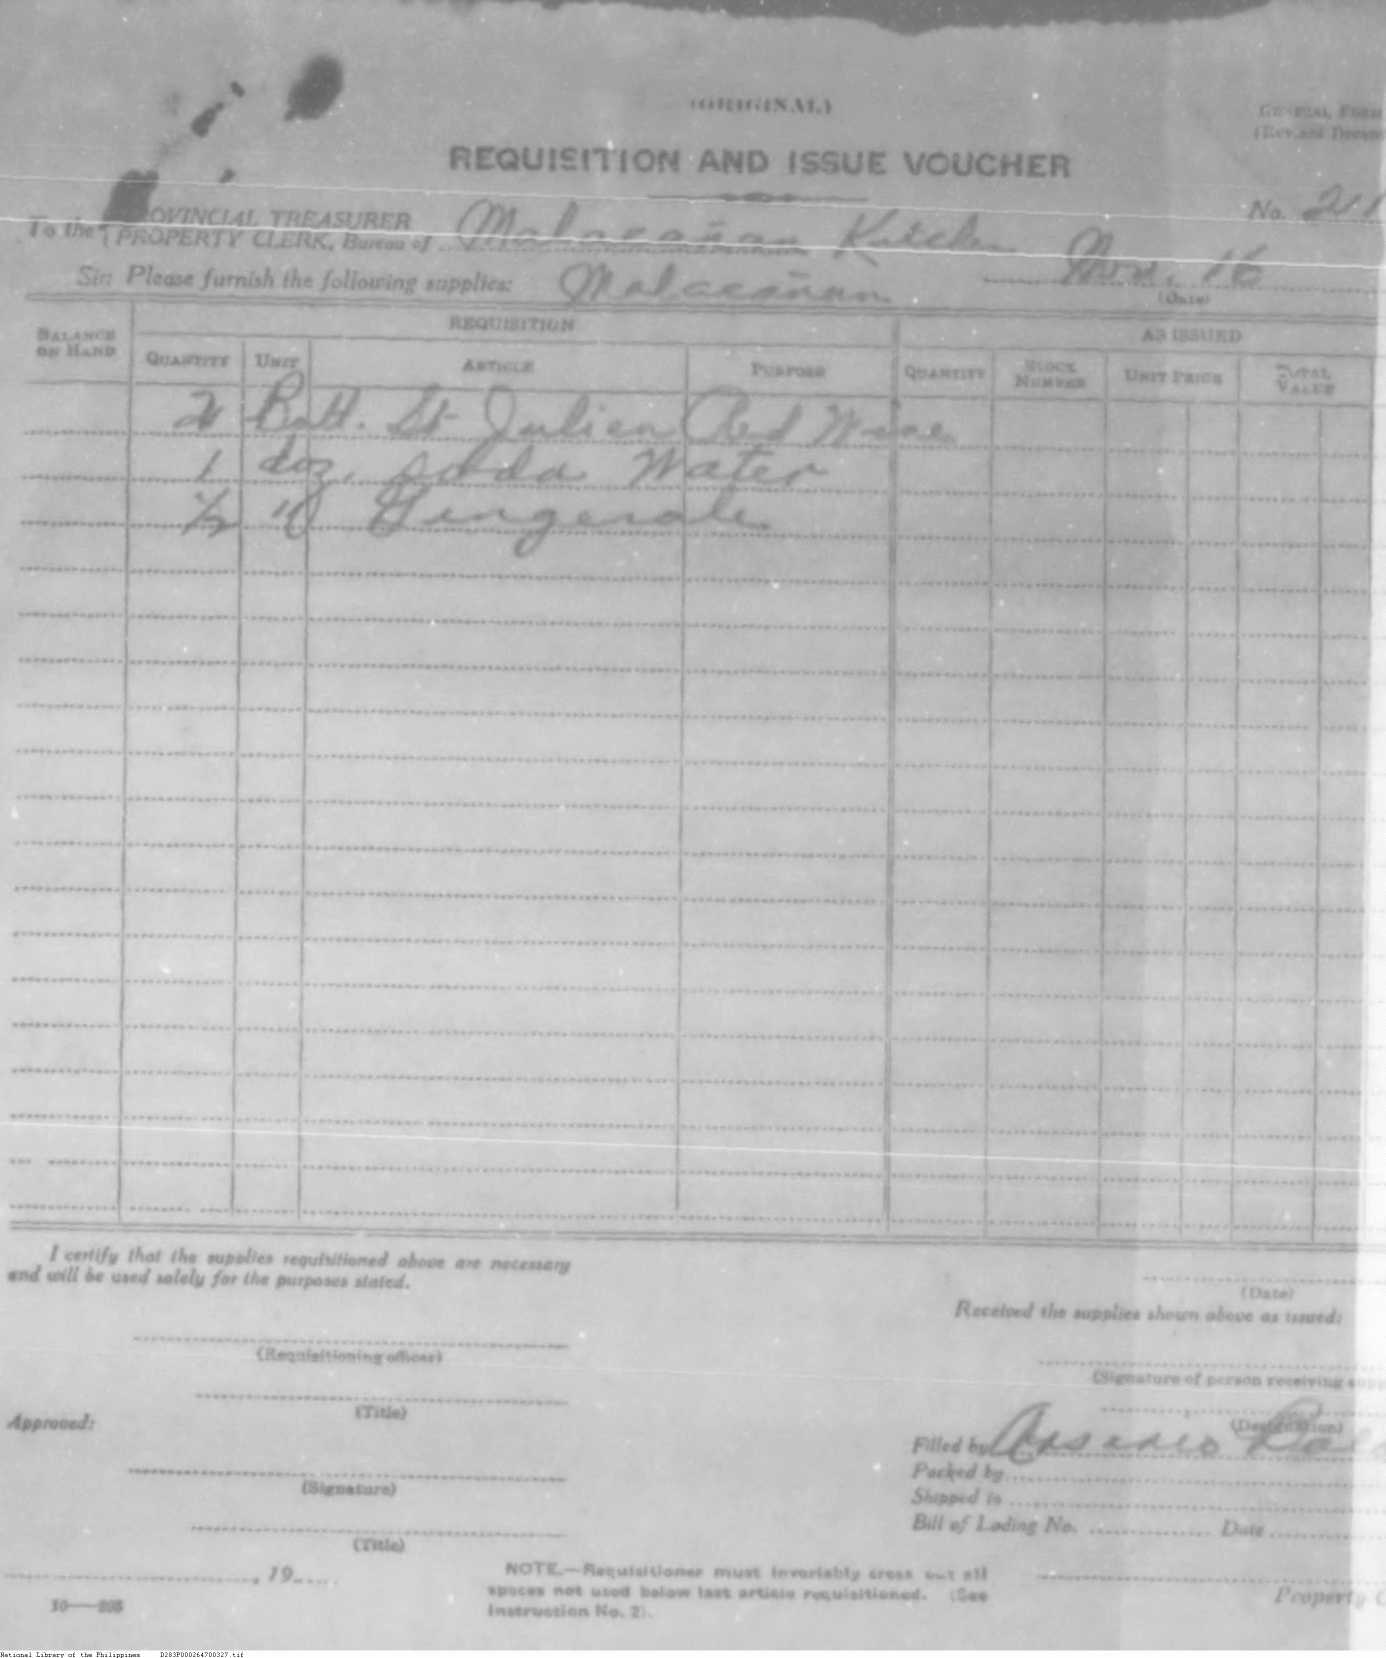 (ORIGINAL)
GENERAL FORM
REQUISITION AND ISSUE VOUCHER
No. 21
To the PROVINCIAL TREASURER
PROPERTY CLERK, Bureau of Malacañan Kitchen Nov. 16
Sir: Please furnish the following supplies: Malacañan (Date)
BALANCE ON HAND
REQUISITION
AS ISSUED
QUANTITY UNIT ARTICLE PURPOSE QUANTITY STOCK NUMBER UNIT PRICE TOTAL VALUE
2 Bott. St Julien Red Wine
1 doz. soda Water
1/2 " Gingerale
I certify that the supplies requisitioned above are necessary
and will be used solely for the purposes stated.
(Date)
Received the supplies shown above as issued:
(Requisitioning officer)
(Signature of person receiving
(Title)
(Designation)
Approved:
Filled by
Packed by
(Signature)
Shipped in
Bill of Lading No. Date
(Title)
, 19
NOTE.—Requisitioner must invariably cross out all
spaces not used below last article requisitioned. (See
Instruction No. 2).
Property C
National Library of the Philippines D283P000264700327.tif